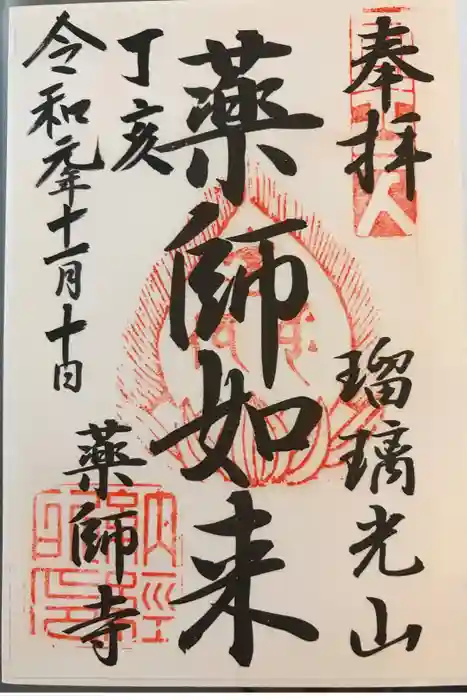 奉拝
瑠璃光山
藥師如来
丁亥
令和元年十一月十日
藥師寺